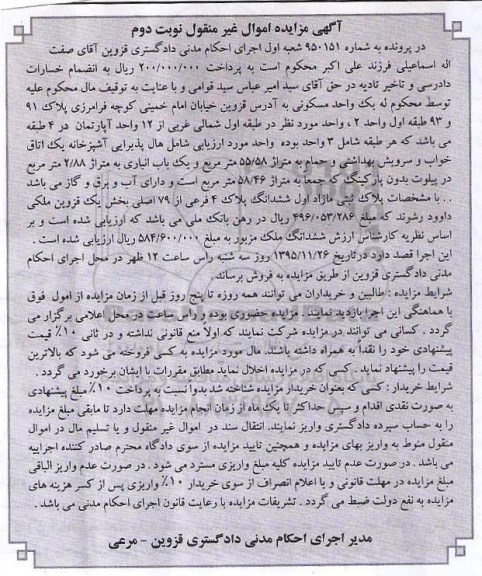 آگهی مزایده اموال غیر منقول نوبت دوم
در پرونده به شماره ۹۵۰۱۵۱ شعبه اول اجرای احکام مدنی دادگستری قزوین آقای صفت
اله اسماعیلی فرزند علی اکبر محکوم است به پرداخت ۲۰۰/۰۰۰/۰۰۰ ریال به انضمام خسارات
دادرسی و تاخیر تادیه در حق آقای سید امیر عباس سید قوامی و با عنایت به توقیف مال محکوم علیه
توسط محکوم له یک واحد مسکونی به آدرس قزوین خیابان امام خمینی کوچه فرامرزی پلاک ۹۱
و ۹۳ طبقه اول واحد ۲ ، واحد مورد نظر در طبقه اول شمالی غربی از ۱۲ واحد آپارتمان در ۴ طبقه
می باشد که هر طبقه شامل ۳ واحد بوده واحد مورد ارزیابی شامل هال پذیرایی آشپزخانه یک اتاق
خواب و سرویش بهداشتی و حمام به متراژ ۵۵/۵۸ متر مربع و یک باب انباری به متراژ ۲/۸۸ متر مربع
در پیلوت بدون پارکینگ که جمعا به متراژ ۵۸/۴۶ متر مربع است و دارای آب و برق و گاز می باشد
. . با مشخصات پلاک ثبتی مازاد اول ششدانگ پلاک ۴ فرعی از ۷۹ اصلی بخش یک قزوین ملکی
داوود رشوند که مبلغ ۴۹۶/۰۵۳/۲۸۶ ریال در رهن بانک ملی می باشد که ارزیابی شده است و بر
اساس نظریه کارشناس ارزش ششدانگ ملک مزبور به مبلغ ۵۸۴/۶۰۰/۰۰۰ ریال ارزیابی شده است .
این اجرا قصد دارد درتاریخ ۱۳۹۵/۱۱/۲۶ روز سه شنبه راس ساعت ۱۲ ظهر در محل اجرای احکام
مدنی دادگستری قزوین از طریق مزایده به فروش برساند .
شرایط مزایده : طالبین و خریداران می توانند همه روزه تا پنج روز قبل از زمان مزایده از اموال فوق
با هماهنگی این اجرا بازدید نمایند . مزایده حضوری بوده و راس ساعت در محل اعلامی برگزار می
گردد . کسانی می توانند در مزایده شرکت نمایند که اولاً منع قانونی نداشته و در ثانی ۱۰٪ قیمت
پیشنهادی خود را نقداً به همراه داشته باشند. مال مورد مزایده به کسی فروخته می شود که بالاترین
قیمت را پیشنهاد نماید . کسی که در مزایده اخلال نماید مطابق مقررات با ایشان برخورد می گردد .
شرایط خریدار : کسی که بعنوان خریدار مزایده شناخته شد بدوا نسبت به پرداخت ۱۰٪ مبلغ پیشنهادی
به صورت نقدی اقدام و سپس حداکثر تا یک ماه از زمان انجام مزایده مهلت دارد تا مابقی مبلغ مزایده
را به حساب سپرده دادگستری واریز نمایند. انتقال سند در اموال غیر منقول و یا تسلیم مال در اموال
منقول منوط به واریز بهای مزایده و همچنین تایید مزایده از سوی دادگاه محترم صادر کننده اجراییه
می باشد . در صورت عدم تایید مزایده کلیه مبلغ واریزی مسترد می شود . در صورت عدم واریز الباقی
مبلغ مزایده در مهلت قانونی و یا اعلام انصراف از سوی خریدار ۱۰٪ واریزی پس از کسر هزینه های
مزایده به نفع دولت ضبط می گردد . تشریفات مزایده با رعایت قانون اجرای احکام مدنی می باشد .
مدیر اجرای احکام مدنی دادگستری قزوین - مرعی